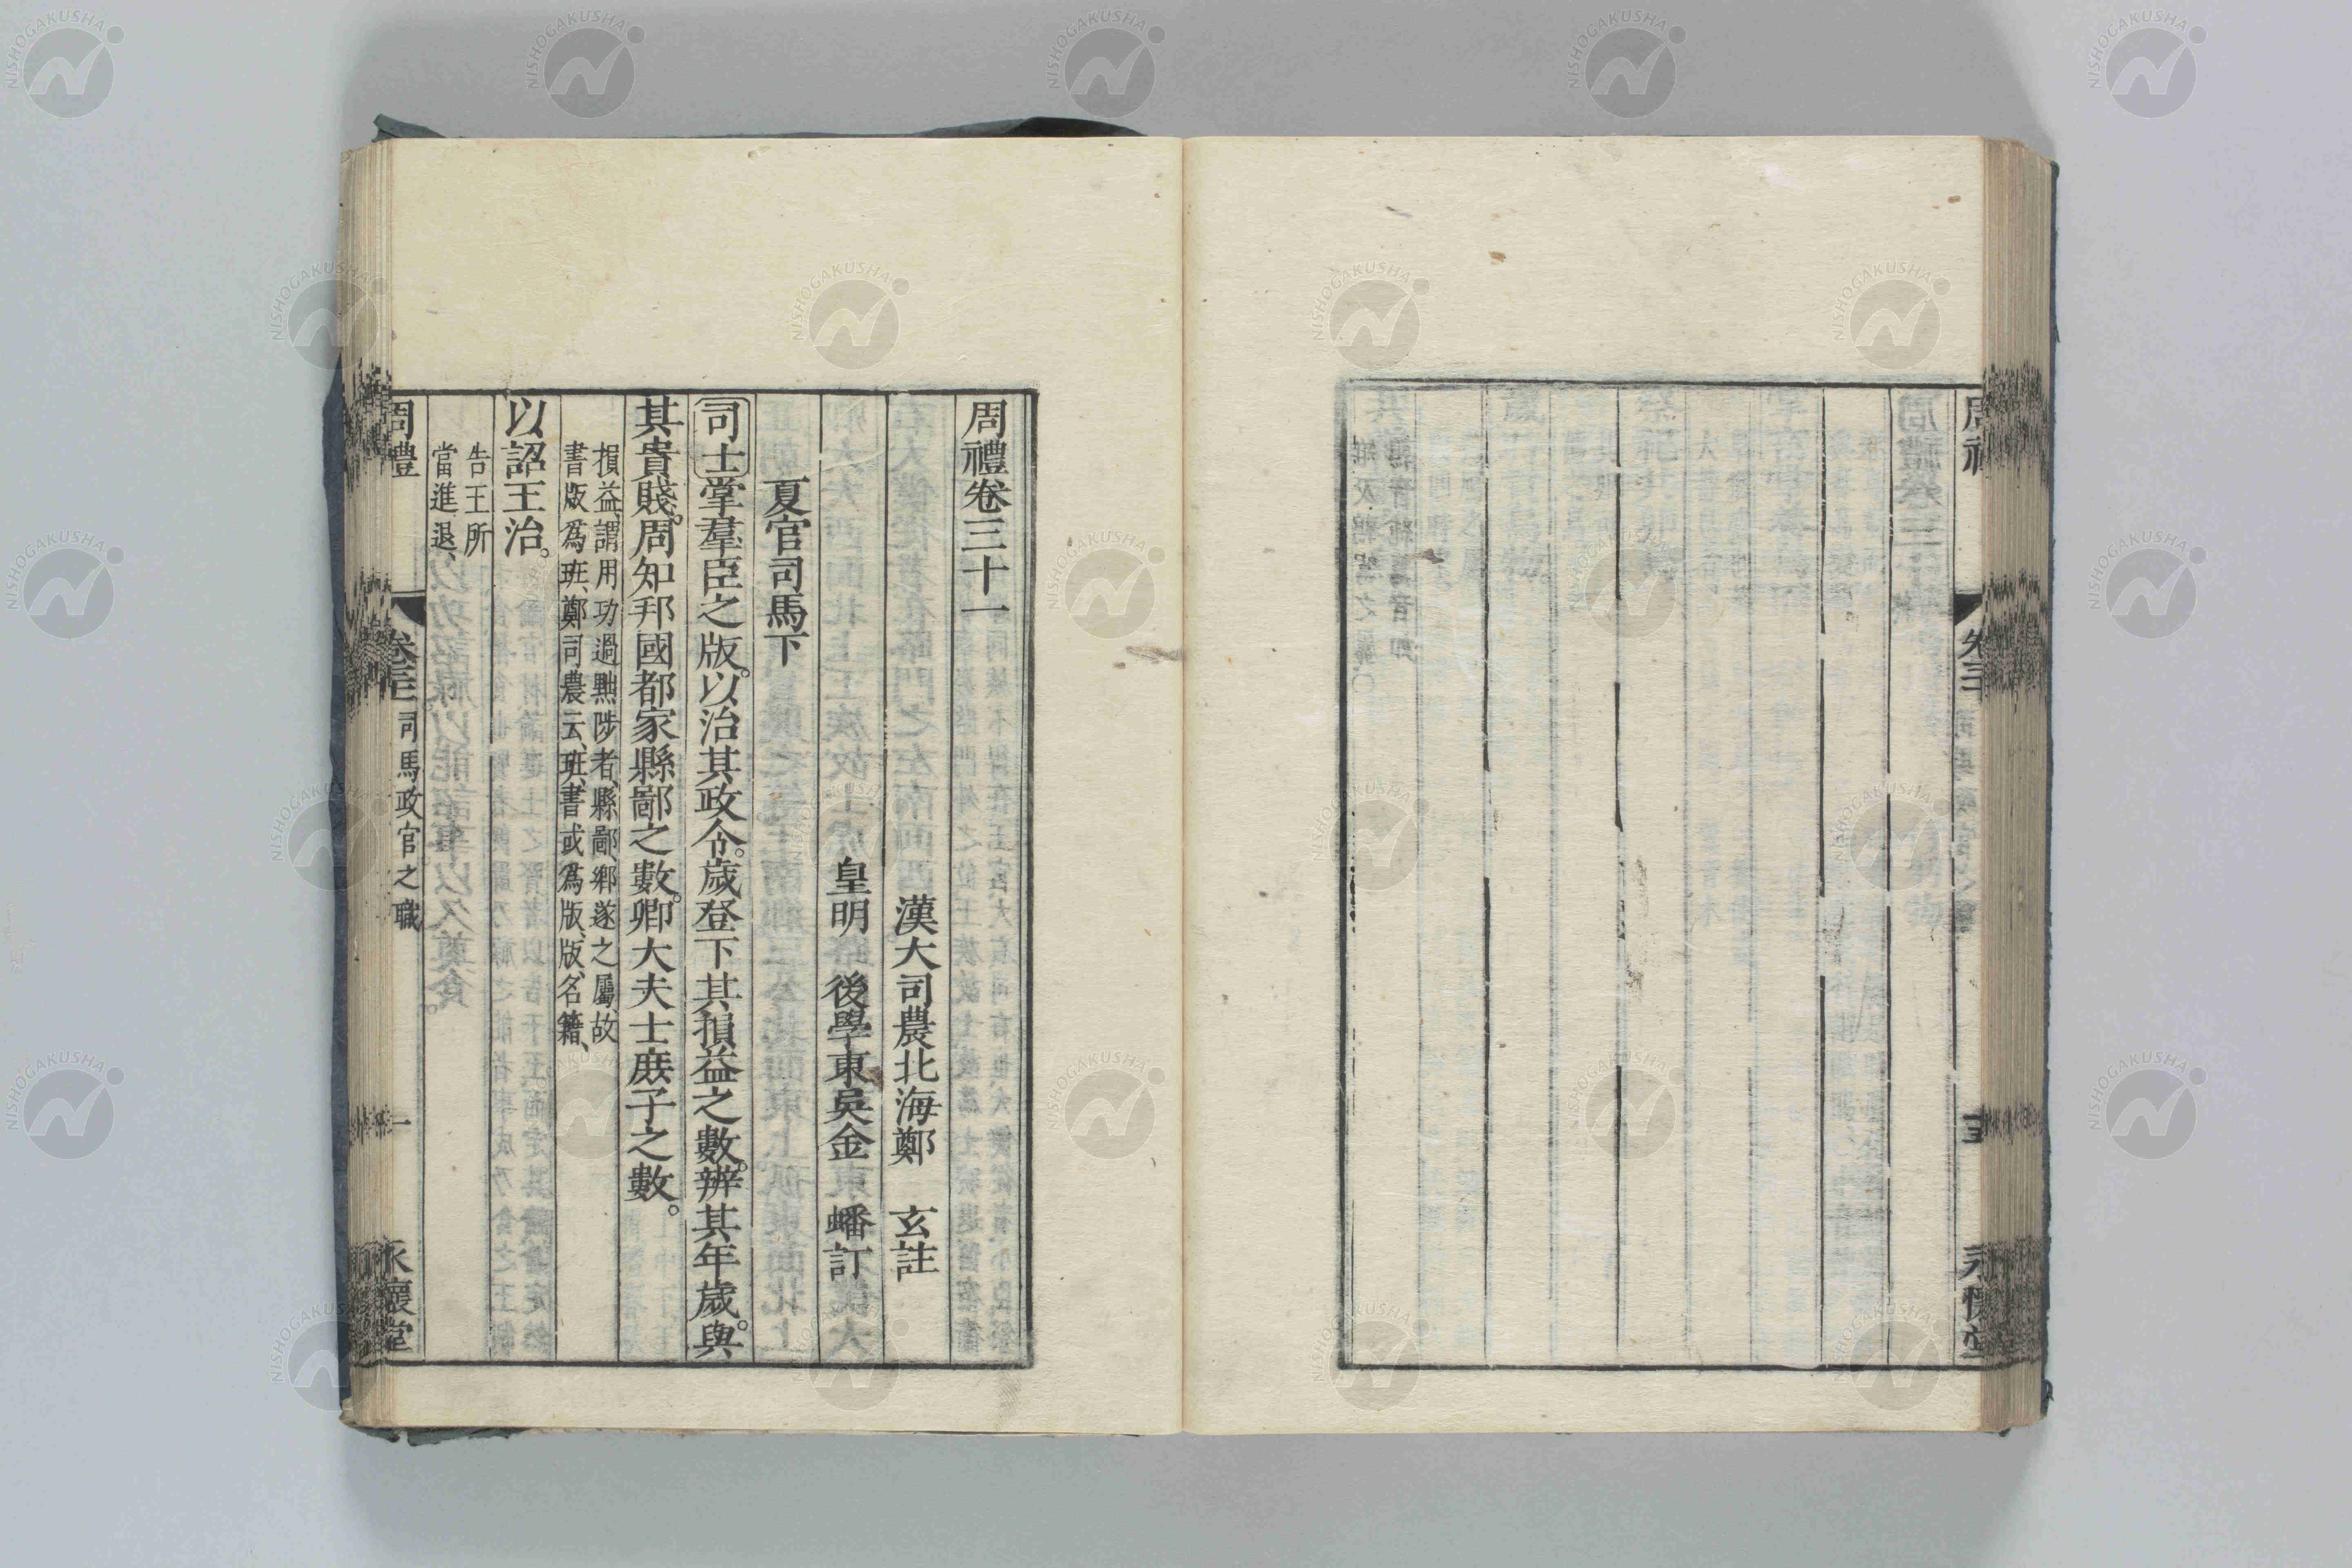 周禮卷三十一
漢大司農北海鄭　玄註
皇明　後學東吳金　蟠訂
夏官司馬下
司士掌羣臣之版。以治其政令。歲登下其損益之數。辨其年歲。與
其貴賤。周知邦國都家縣鄙之數。卿大夫士庶子之數。
損益、謂用功過黜陟者、縣鄙、鄉遂之屬、故
書版爲班、鄭司農云、班、書或爲版、版、名籍、
以詔王治。
告王所
當進退、
周禮
卷三
司馬政官之職
一
永懷堂
永懷堂
NISHOGAKUSHA